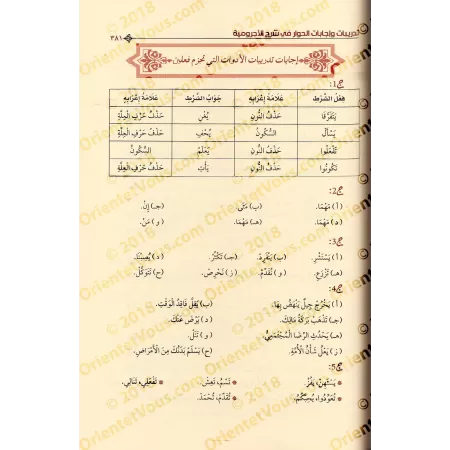 تدريبات وإجابات الحوار في شرح الآجرومية ٣٨١
إجابات تدريبات الأدوات التي تجزم فعلين
ج1:
فِعْلُ الشَّرْطِ عَلَامَةُ إِعْرَابِهِ جَوَابُ الشَّرْطِ عَلَامَةُ إِعْرَابِهِ
يَتَفَرَّقَا حَذْفُ النُّونِ يُغْنِ حَذْفُ حَرْفِ الْعِلَّةِ
يَسْأَلْ السُّكُونُ حَذْفُ حَرْفِ الْعِلَّةِ
تَفْعَلُوا حَذْفُ النُّونِ يَعْلَمْ السُّكُونُ
تَكُونُوا حَذْفُ النُّونِ يَأْتِ حَذْفُ حَرْفِ الْعِلَّةِ
ج2:
(أ) مَهْمَا. (ب) مَتَى. (جـ) إِنْ.
(د) مَهْمَا. (هـ) مَهْمَا. (و) مَنْ.
ج3:
(أ) يَسْتَشِرْ. (ب) (جـ) تَكْثُرْ. (د) يُصِبْنَا.
(هـ) تَزْرَعْ. (و) تُقَدِّمْ. (ز) تَحْرِصْ. (ح) تَتَوَكَّلْ.
ج4:
(أ) يَخْرُجْ جِيلٌ يَنْهَضُ بِهَا. (ب) يَقِلَّ فَاقِدُ الْوَقْتِ.
(جـ) تَذْهَبْ بَرَكَةُ مَالِكَ. (د) يَرْضَ عَنْكَ.
(هـ) يَحْدُثِ الرِّضَا الْمُجْتَمَعِيُّ. (و) تَنَلْ.
(ز) يَعْلُ شَأْنُ الْأُمَّةِ. (ح) يَسْلَمْ بَدَنُكَ مِنَ الْأَمْرَاضِ.
ج5:
يَسْتَهِنْ، تَسْمُ، تَعِشْ. تَفْعَلِي، تَنَالِي.
تَعُودُوا، تُقَدِّمْ، تُحْمَدْ.
© 2018 OrientetVous.com